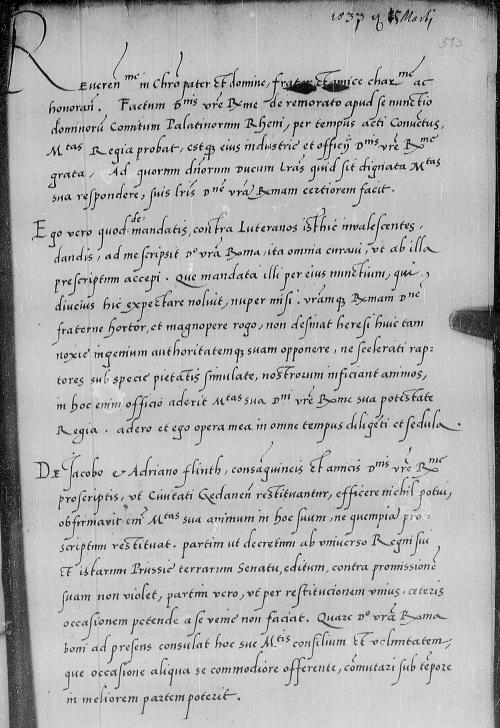 1537 15 Martij
513
Reveren^me in Chro pater et domine, frater et amice char^me ac
honoran. Factum D^nis vre R^me de remorato apud se nunctio
dominoru Comitum Palatinorum Rheni, per tempus acti Conuctus,
M^tas Regia probat, estq eius industrie et officij D^nis vre R^me
grata. Ad quorum dnorum Ducum lras quid sit dignata M^tas
sua respondere, suis lris D^ne vra R^mam certiorem facit.
Ego vero quod de mandatis, contra Luteranos isthic invalescentes,
dandis, ad me scripsit D^o vra R^ma, ita omnia curavi, ut ab illa
prescriptum accepi. Que mandata illi per eius nunctium, qui
diucius hic expectare noluit, nuper misi. vramq R^mam D^ne
fraterne hortor, et magnopere rogo, non desinat heresi huic tam
noxie ingenium authoritatemq suam opponere, ne scelerati rap-
tores sub specie pietatis simulate, nostrorum inficiant animos,
in hoc enim officio aderit M^tas sua D^ni vre R^me sua potestate
Regia. adero et ego opera mea in omne tempus diligeti et sedula.
De Jacobo et Adriano flinth, consaguineis et amicis D^nis vre R^me
proscriptis, ut Civitati Gedanen restituantur, efficere nichil potui,
obfirmavit eni M^tas sua animum in hoc suum, ne quempia pro-
scriptum restituat. partim ut decretum ab universo Regni sui
et istarum Prussie terrarum Senatu, editum, contra promissione
suam non violet, partim vero, ut per restitucionem unius, ceteris
occasionem petende a se venie non faciat. Quare D^o vra R^ma
boni ad presens consulat hoc sue M^tis consilium et voluntatem,
que occasione aliqua se commodiore offerente, comutari sub tepore
in meliorem partem poterit.